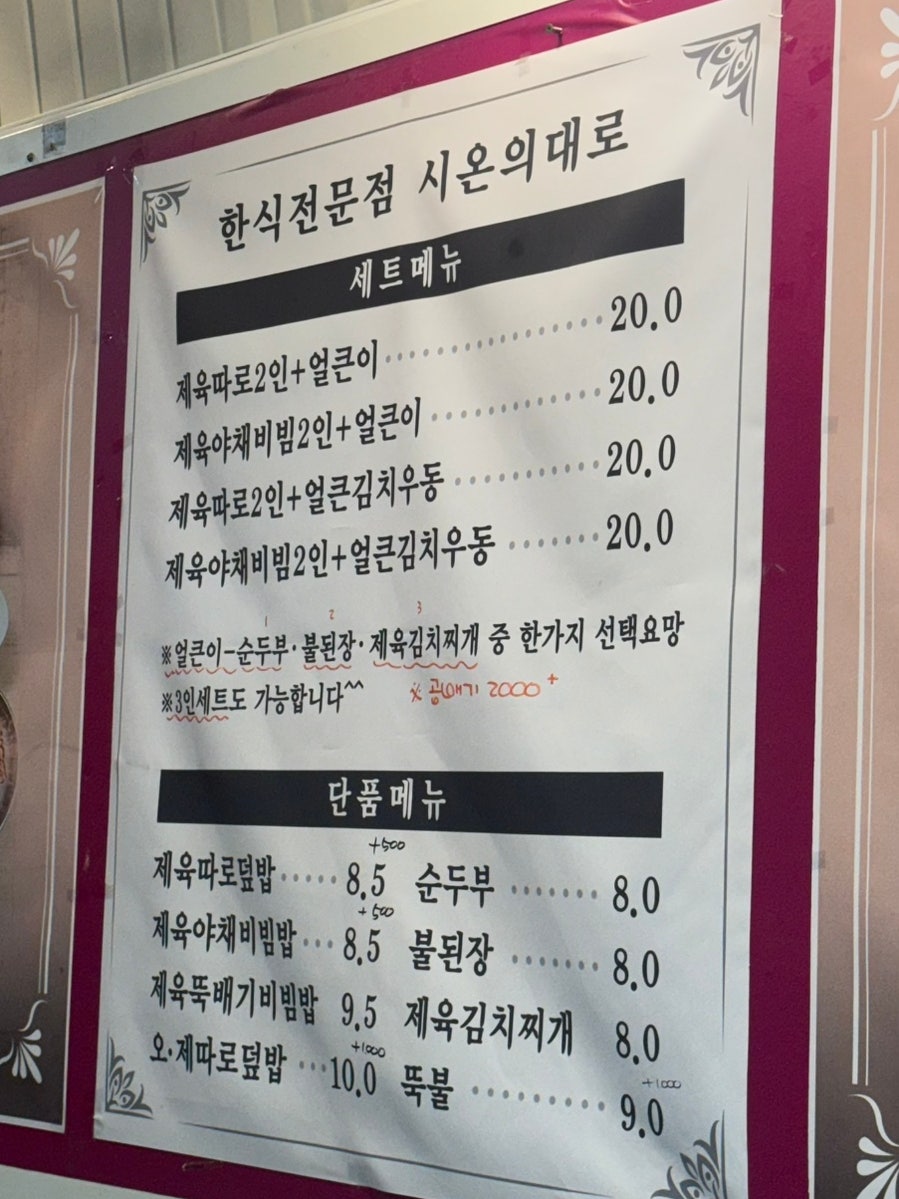 한식전문점 시온의대로
세트메뉴
제육따로2인+얼큰이 20.0
제육야채비빔2인+얼큰이 20.0
제육따로2인+얼큰김치우동 20.0
제육야채비빔2인+얼큰김치우동 20.0
1 2 3
※얼큰이-순두부·불된장·제육김치찌개 중 한가지 선택요망
※3인세트도 가능합니다^^ ※곱빼기 2000+
단품메뉴
+500
제육따로덮밥 8.5 순두부 8.0
+500
제육야채비빔밥 8.5 불된장 8.0
제육뚝배기비빔밥 9.5 제육김치찌개 8.0
+1000 +1000
오·제따로덮밥 10.0 뚝불 9.0